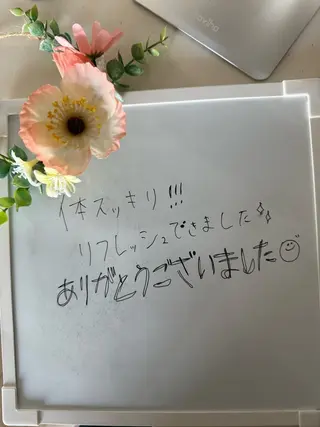 体スッキリ!!!
リフレッシュできました✨
ありがとうございました☺